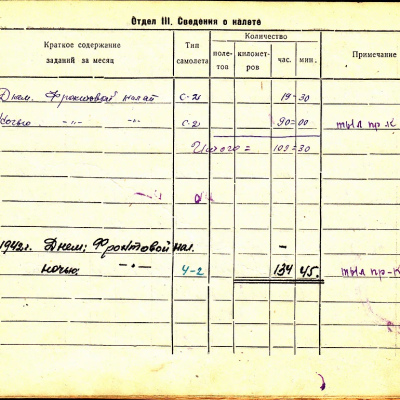 Отдел III. Сведения о налете
Краткое содержание заданий за месяц
Тип самолета
Количество
поле-тов
километ-ров
час.
мин.
Примечание
Днем. Фронтовой налет С-2 19-30
Ночью -"- -"- С-2 90=00 тыл пр-к
Итого= 109=30
1942г. Днем: Фронтовой нал. -
ночью -"- У-2 134 45. тыл пр-к